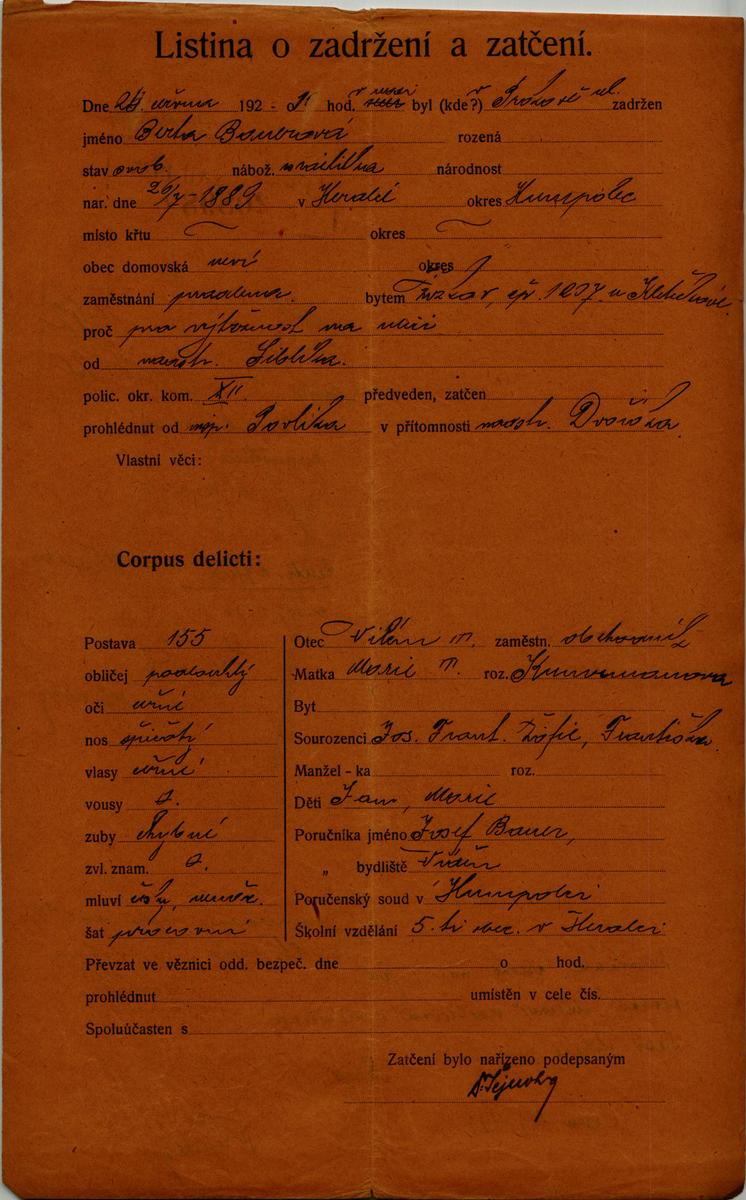 Listina o zadržení a zatčení.
Dne 24. června 192 - o 1 hod. v noci byl (kde?) v ul. zadržen
jméno Berta Bauerová rozená
stav svob. nábož. israelitka národnost
nar. dne 26/7 - 1889 v Heralci okres Humpolec
místo křtu okres
obec domovská neví okres
zaměstnání pradlena. bytem Žižkov, čp. 1207 u
proč pro výtržnost na ulici
od nadstr.
polic. okr. kom. XII. předveden, zatčen
prohlédnut od insp. Pavlíka v přítomnosti nadstr. Dvořáka
Vlastní věci:
Corpus delicti:
Postava 155
obličej podlouhlý
oči černé
nos špičatý
vlasy černé
vousy
zuby chybné
zvl. znam.
mluví česky, němec.
šat pracovní
Otec Vilém m. zaměstn. obchodník
Matka Marie m. roz.
Byt
Sourozenci Jos. Frant. Žofie, Františka
Manžel - ka roz.
Děti Jan, Marie
Poručníka jméno Josef Bauer,
„ bydliště Vídeň
Poručenský soud v Humpolci
Školní vzdělání 5. tř. obec. v Heralci
Převzat ve věznici odd. bezpeč. dne o hod.
prohlédnut umístěn v cele čís.
Spoluúčasten s
Zatčení bylo nařízeno podepsaným